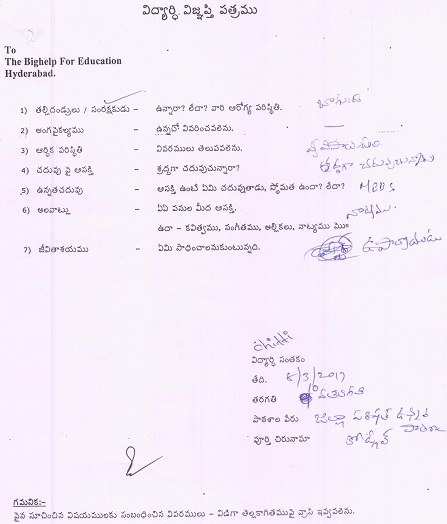 విద్యార్ధి విజ్ఞప్తి పత్రము
To
The Bighelp For Education
Hyderabad.
1) తల్లిదండ్రులు / సంరక్షకుడు – ఉన్నారా? లేదా? వారి ఆరోగ్య పరిస్థితి. బాగుంది
2) అంగవైకల్యము – ఉన్నచో వివరించవలెను. —
3) ఆర్థిక పరిస్థితి – వివరములు తెలుపవలెను. వ్యవసాయం
4) చదువు పై ఆసక్తి – శ్రద్ధగా చదువుచున్నారా? శ్రద్ధగా చదువుచున్నాడు
5) ఉన్నతచదువు – ఆసక్తి ఉంటే ఏమి చదువుతాడు, స్తోమత ఉందా? లేదా? MBBS
6) అలవాట్లు – ఏఏ పనుల మీద ఆసక్తి. నాట్యము
ఉదా – కవిత్వము, సంగీతము, అల్లికలు, నాట్యము మొ॥
7) జీవితాశయము – ఏమి సాధించాలనుకుంటున్నది. ఉపాధ్యాయుడు
chitti
విద్యార్థి సంతకం
తేది. 8/3/2017
తరగతి 10 వతరగతి
పాఠశాల పేరు జిల్లా పరిషత్ ఉన్నత పాఠశాల
పూర్తి చిరునామా
గమనిక:–
పైన సూచించిన విషయములకు సంబంధించిన వివరములు – విడిగా తెల్లకాగితముపై వ్రాసి ఇవ్వవలెను.